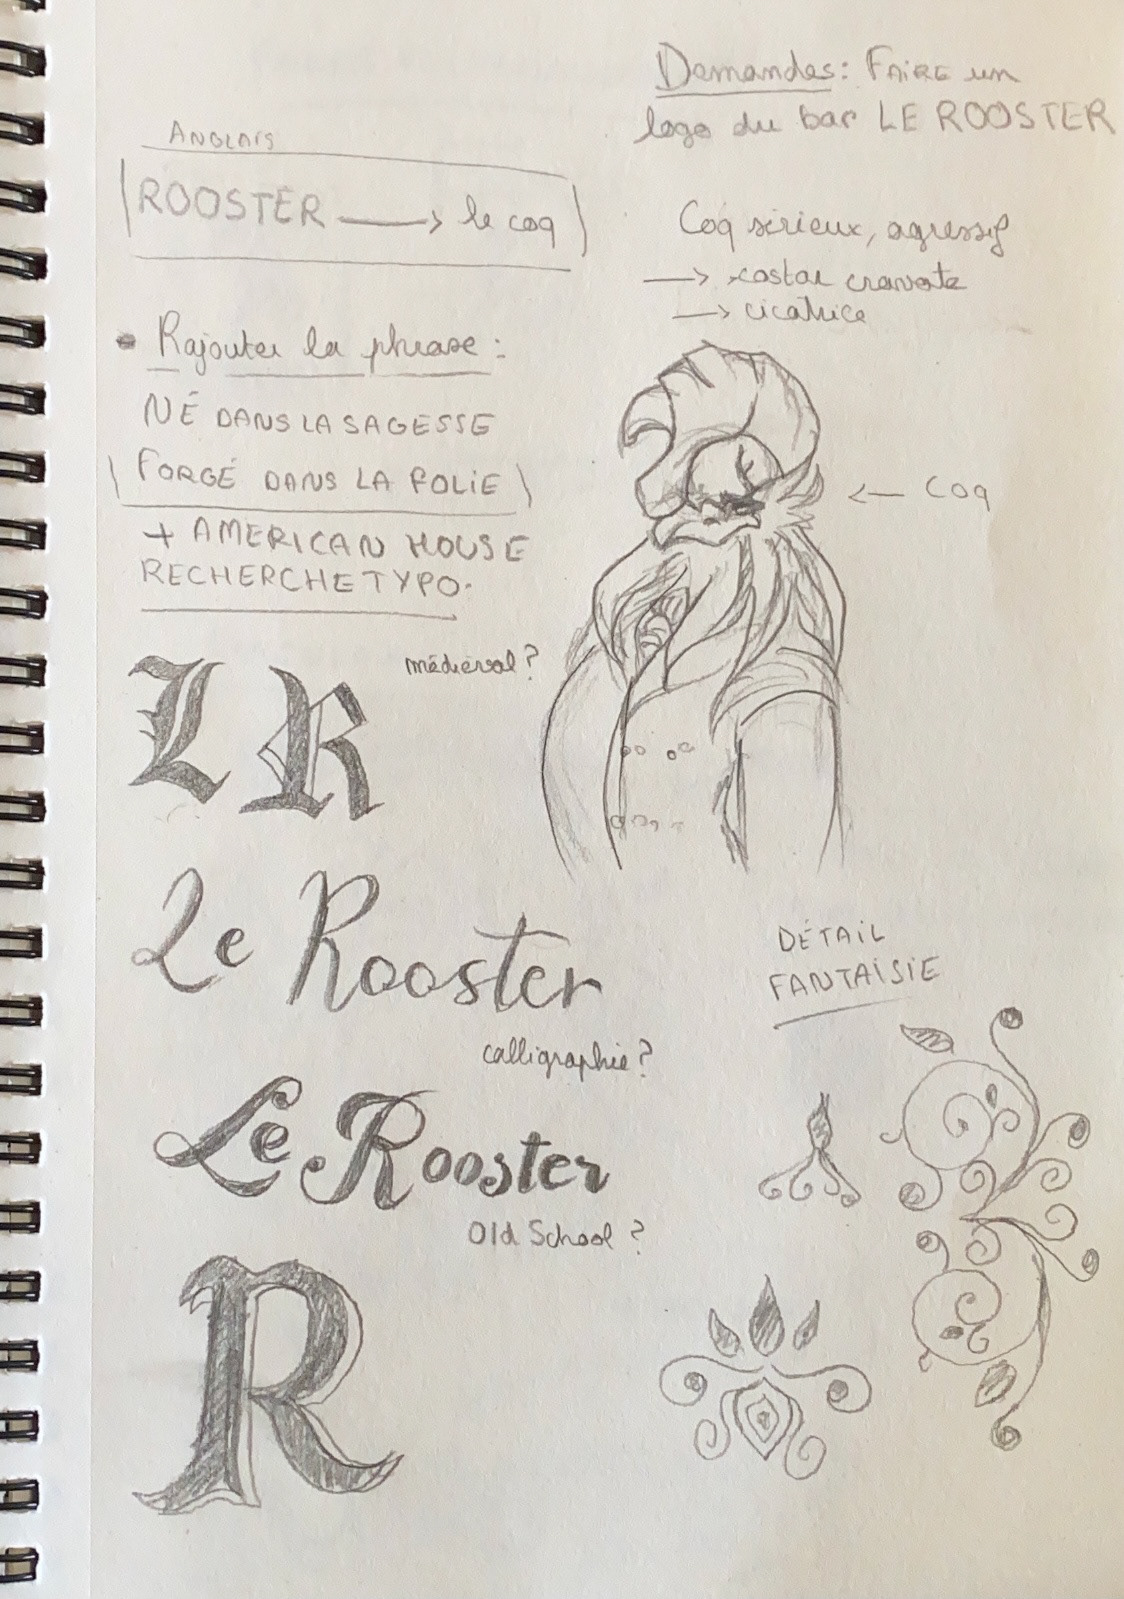 Demandes: FAIRE un
logo du bar LE ROOSTER
ANGLAIS
ROOSTER → le coq
Coq sérieux, agressif
→ costar cravate
→ cicatrice
• Rajouter la phrase :
NÉ DANS LA SAGESSE
FORGÉ DANS LA FOLIE
+ AMERICAN HOUSE
RECHERCHE TYPO.
← COQ
médiéval ?
LR
Le Rooster
calligraphie ?
DÉTAIL
FANTAISIE
Le Rooster
Old School ?
R